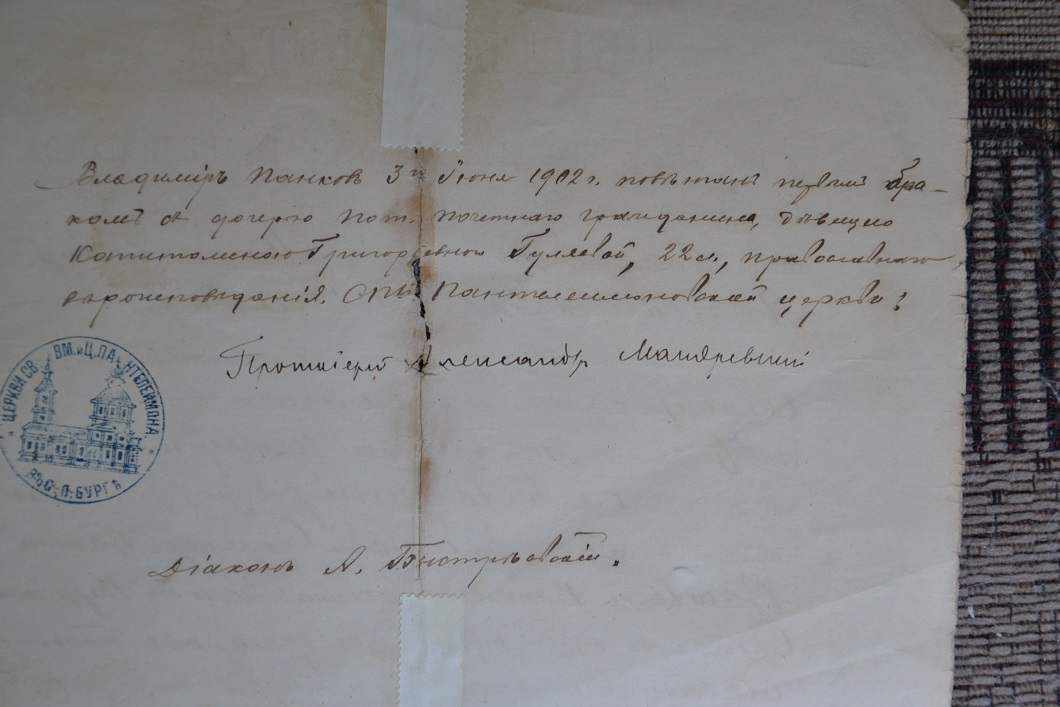 Владиміръ Панков 3го Іюня 1902 г. повѣнчанъ первымъ бра-
комъ съ дочерью пот. почетнаго гражданина, дѣвицею
Капитолиною Григорьевной Гуляевой, 22 л., православнаго
вѣроисповѣданія. СПБ Пантелеимоновской церкви:
Протоіерей Александр
ЦЕРКВИ СВ. ВМ. и Ц. ПАНТЕЛЕЙМОНА
ВЪ С.-П. БУРГѢ
Діаконъ А. Быстреевскій.